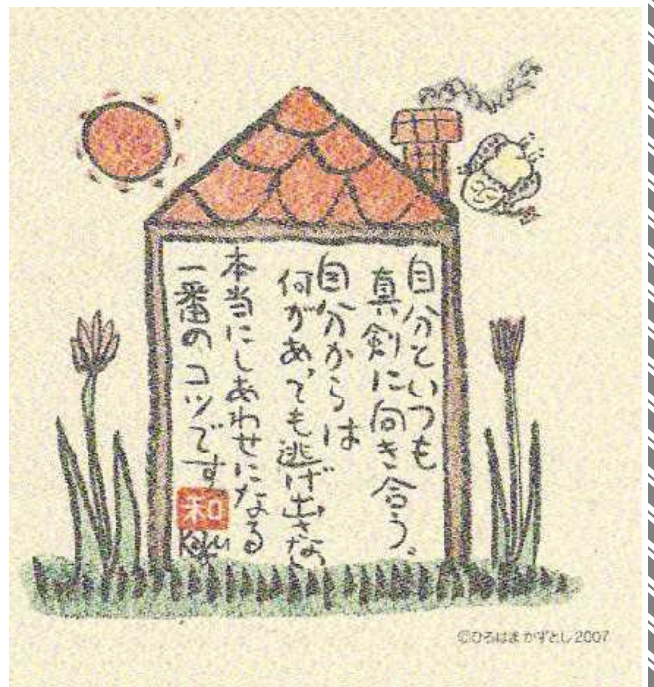 自分といつも
真剣に向き合う。
自分からは
何があっても逃げ出さない
本当にしあわせになる
一番のコツです
和
©ひろはまかずとし 2007